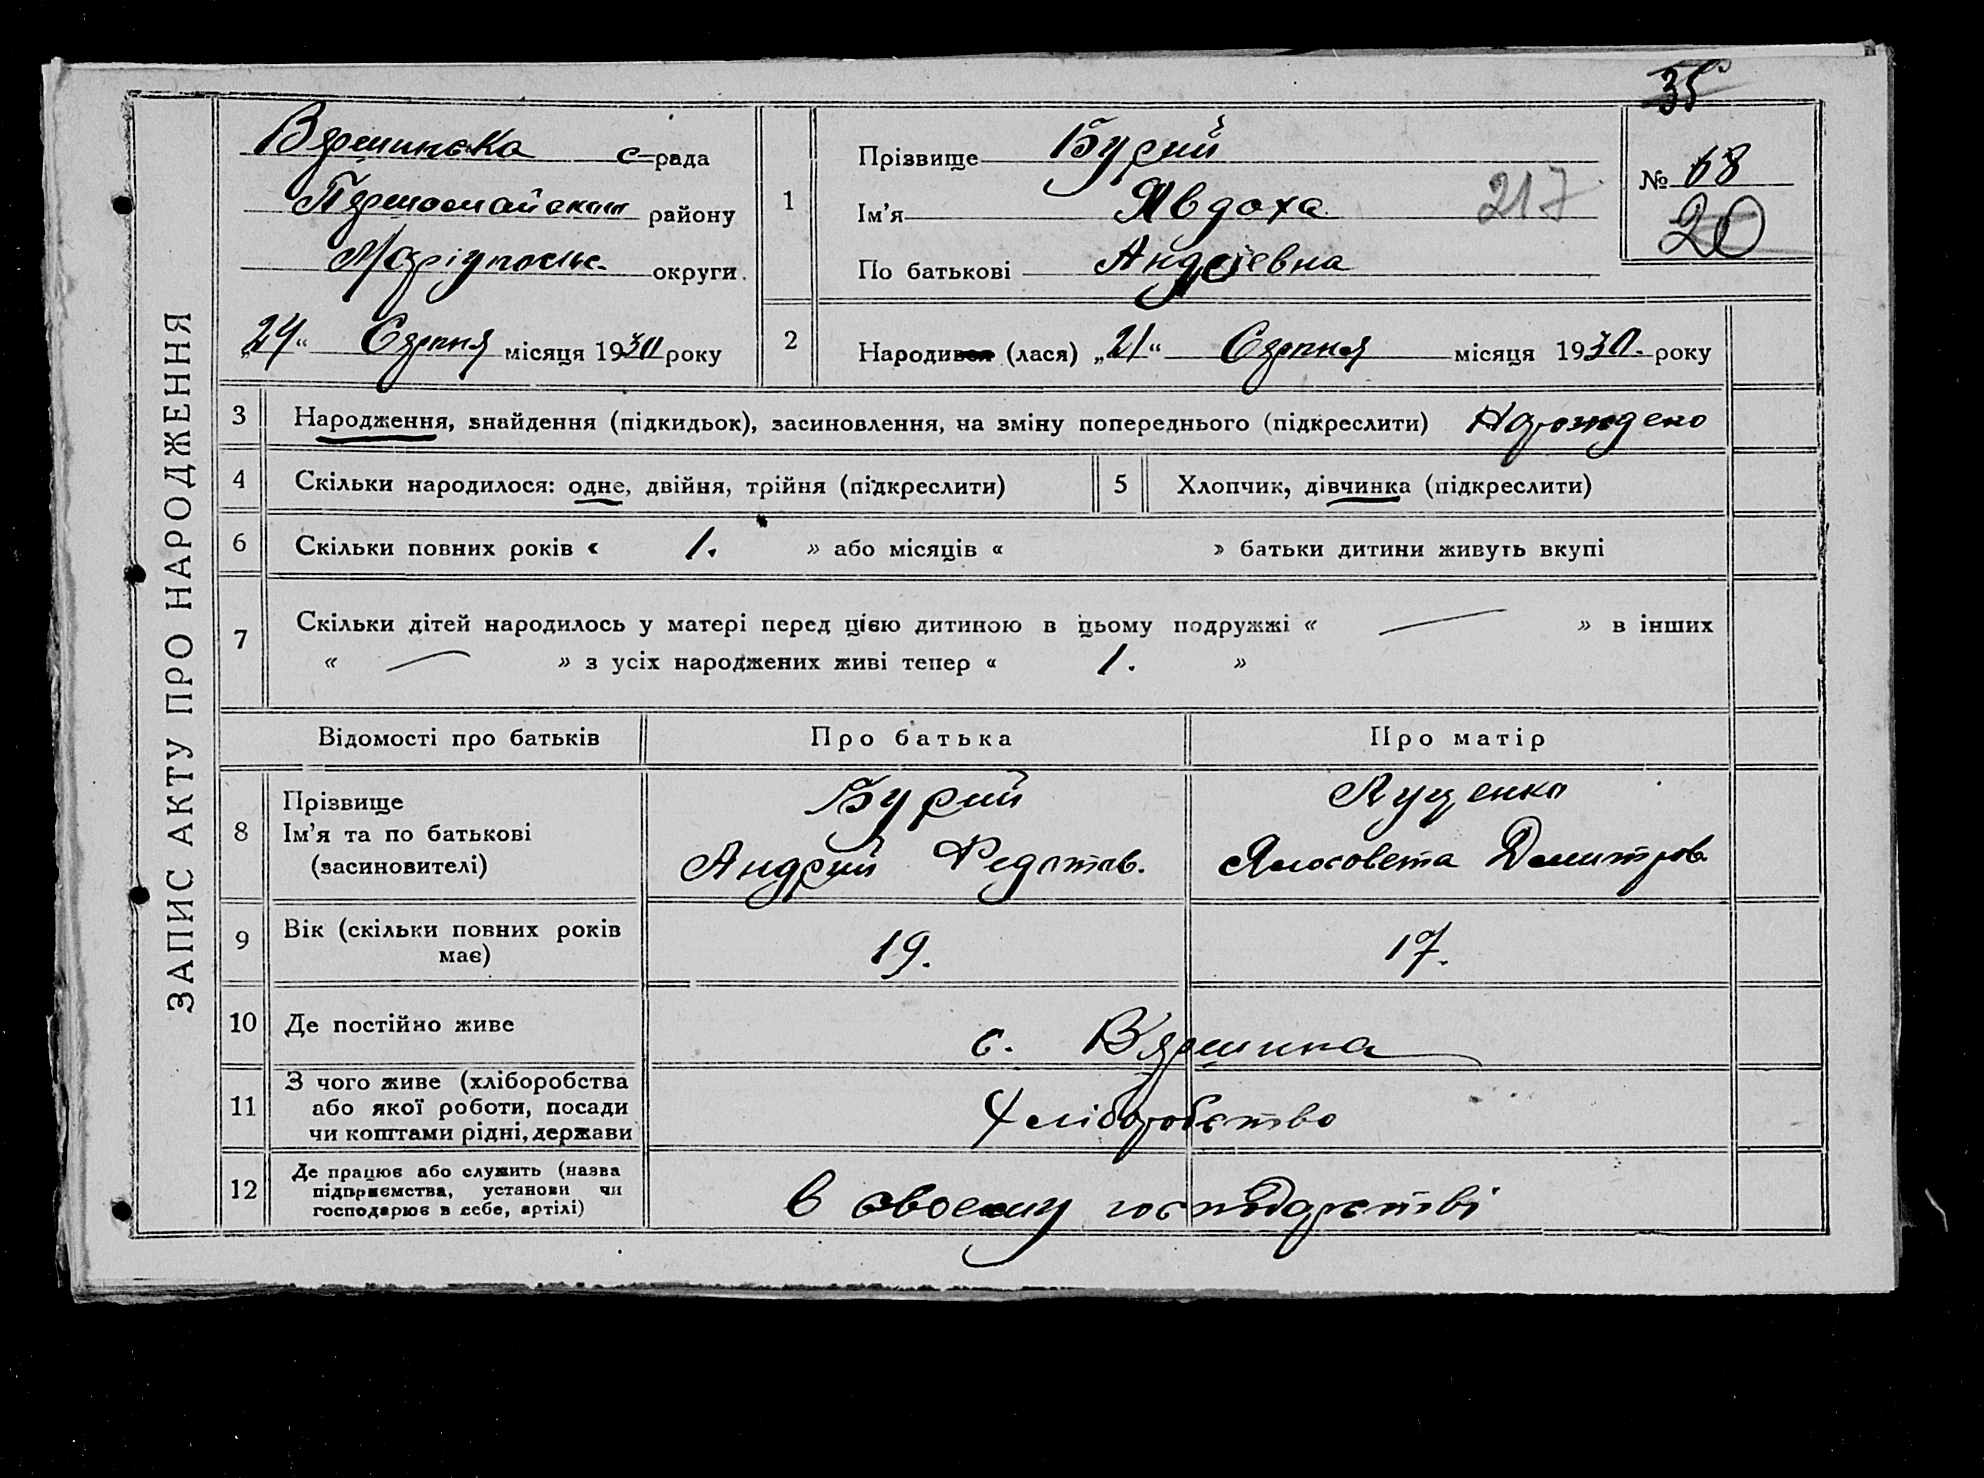 35
ЗАПИС АКТУ ПРО НАРОДЖЕННЯ
Вершинська с-рада
Першомайським району
Маріупольс. округи
„24“ Серпня місяця 1930 року
1
Прізвище Бурий
Ім’я Явдоха 217
По батькові Андрієвна
№ 68
20
2
Народився (лася) „21“ Серпня місяця 1930. року
3 Народження, знайдення (підкидьок), засиновлення, на зміну попереднього (підкреслити)
4 Скільки народилося: одне, двійня, трійня (підкреслити) 5 Хлопчик, дівчинка (підкреслити)
6 Скільки повних років « 1. » або місяців « » батьки дитини живуть вкупі
7 Скільки дітей народилось у матері перед цією дитиною в цьому подружжі « — » в інших
« — » з усіх народжених живі тепер « 1. »
Відомості про батьків Про батька Про матір
8 Прізвище Бурий Луценко
Ім’я та по батькові
(засиновителі) Андрий Федотов. Ялосовета Дмитров.
9 Вік (скільки повних років має) 19. 17.
10 Де постійно живе с. Вершина
11 З чого живе (хліборобства
або якої роботи, посади
чи коштами рідні, держави Хліборобство
12 Де працює або служить (назва
підприємства, установи чи
господарює в себе, артілі) в своему господарстві